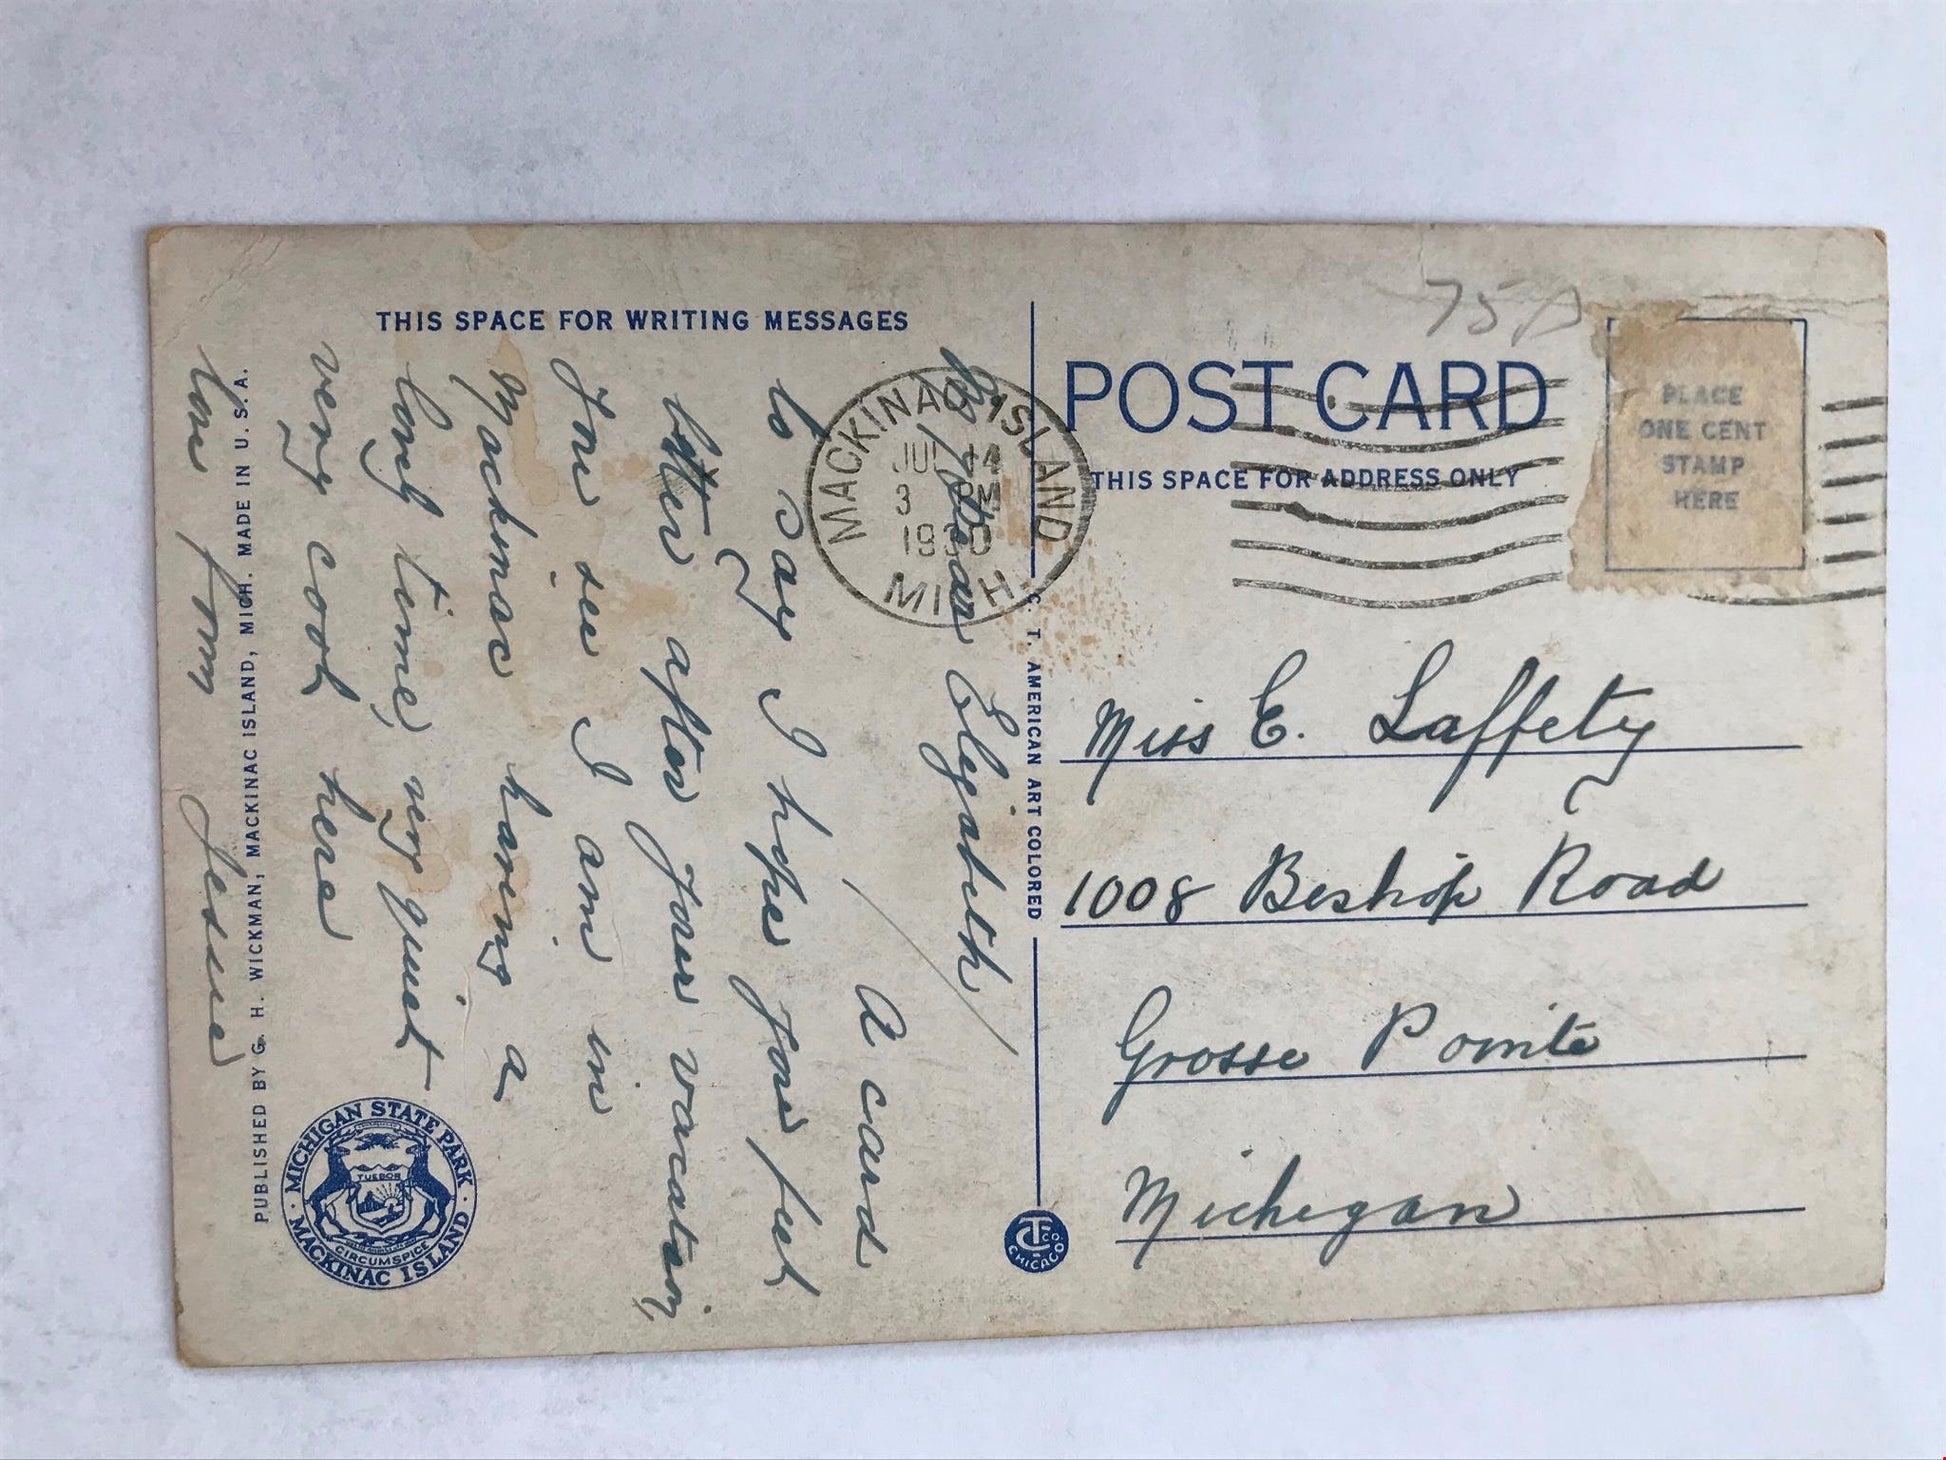 THIS SPACE FOR WRITING MESSAGES
Elizabeth
A card
to say I hope you feel
better after your vacation,
You see I am in
Mackinac having a
lovely time, very quiet
very cool here
love from Jessie
PUBLISHED BY G. H. WICKMAN, MACKINAC ISLAND, MICH. MADE IN U. S. A.
MICHIGAN STATE PARK
TUEBOR
CIRCUMSPICE
MACKINAC ISLAND
MACKINAC ISLAND
JUL 14
3 PM
MICH.
C. T. AMERICAN ART COLORED
C T CO
CHICAGO
75
POST CARD
THIS SPACE FOR ADDRESS ONLY
PLACE
ONE CENT
STAMP
HERE
Miss E. Laffety
1008 Bishop Road
Grosse Pointe
Michigan